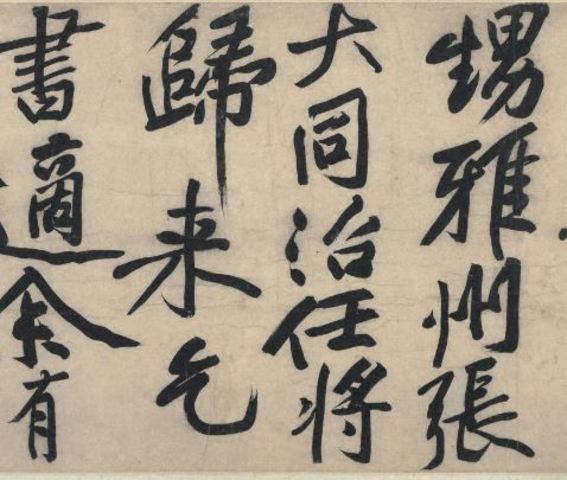 甥雅州張
大同治任将
歸来乞
書適余有